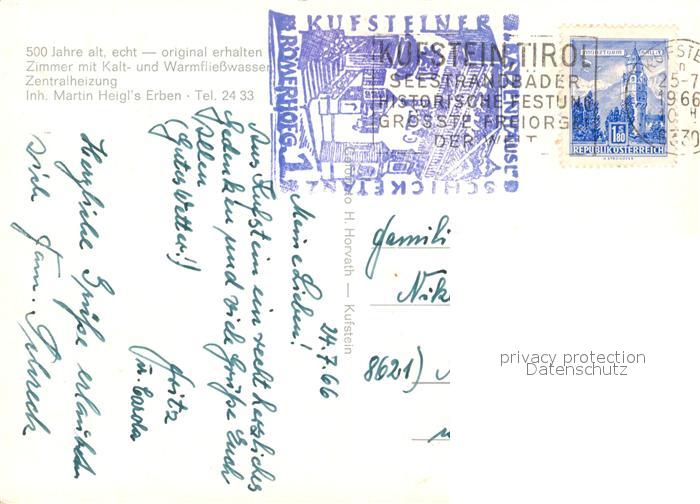 500 Jahre alt, echt — original erhalten
Zimmer mit Kalt- und Warmfließwasser
Zentralheizung
Inh. Martin Heigl's Erben · Tel. 24 33
KUFSTEINER
RÖMERHOFG. 1
SCHICKETANZ
KUFSTEIN, TIROL
SEESTRANDBÄDER
HISTORISCHE FESTUNG
GRÖSSTE FREIORG
DER WELT
KUFSTE
25-7
1966
6330
1.80
REPUBLIK ÖSTERREICH
H. Horvath — Kufstein
24.7.66
Meine Lieben!
Aus Kufstein ein recht herzliches
Gedenken und viele Grüße Euch
allen
(Gutes Wetter!)
Fritz
Herzliche Grüße erlauben
sich Fam.
Famili
Nik
8621)
privacy protection
Datenschutz